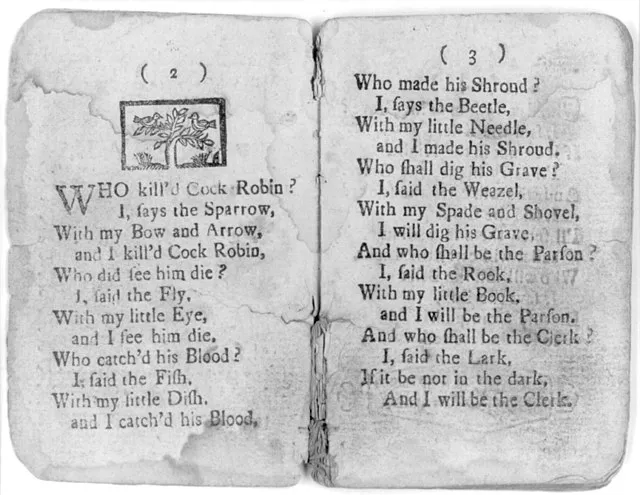 ( 2 )
WHO kill'd Cock Robin?
I, ſays the Sparrow,
With my Bow and Arrow,
and I kill'd Cock Robin,
Who did ſee him die?
I, ſaid the Fly,
With my little Eye,
and I ſee him die.
Who catch'd his Blood?
I, ſaid the Fiſh,
With my little Diſh.
and I catch'd his Blood,
( 3 )
Who made his Shroud?
I, ſays the Beetle,
With my little Needle,
and I made his Shroud.
Who ſhall dig his Grave?
I, ſaid the Weazel,
With my Spade and Shovel,
I will dig his Grave.
And who ſhall be the Parſon?
I, ſaid the Rook,
With my little Book,
and I will be the Parſon.
And who ſhall be the Clerk?
I, ſaid the Lark,
If it be not in the dark,
And I will be the Clerk.